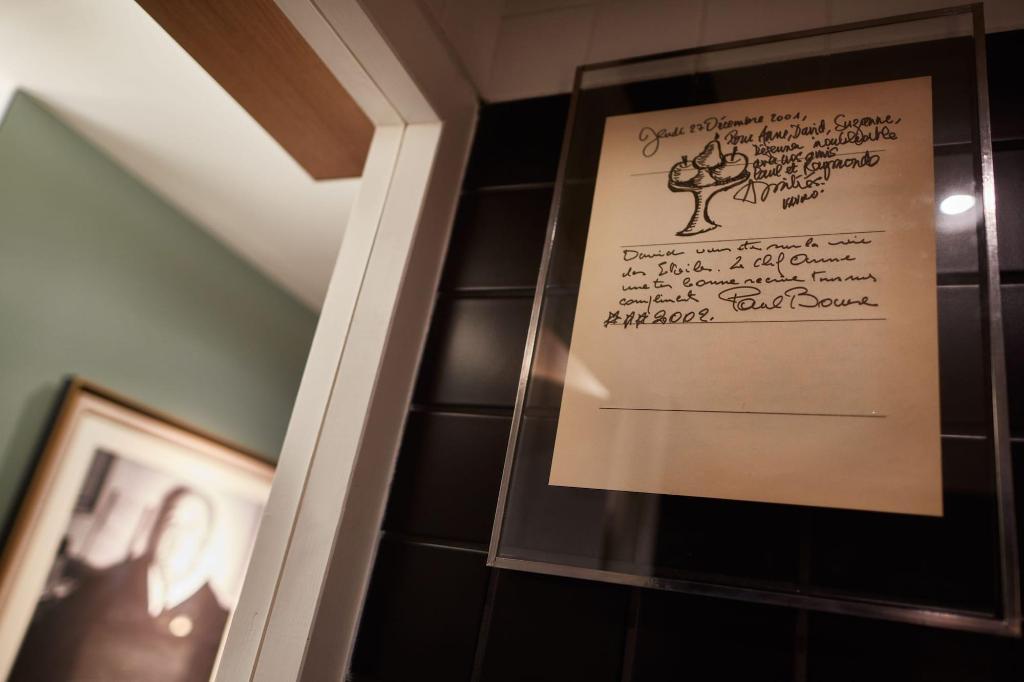 Jeudi 27 Décembre 2001,
Pour Anne, David, Suzanne,
Déjeuner inoubliable
avec nos amis
Paul et Raymonde
Amitiés.
David vous êtes sur la voie
des Etoiles. Le chef Anne
une tès bonne recrue tous mes
compliments Paul Bocuse
*** 2002.